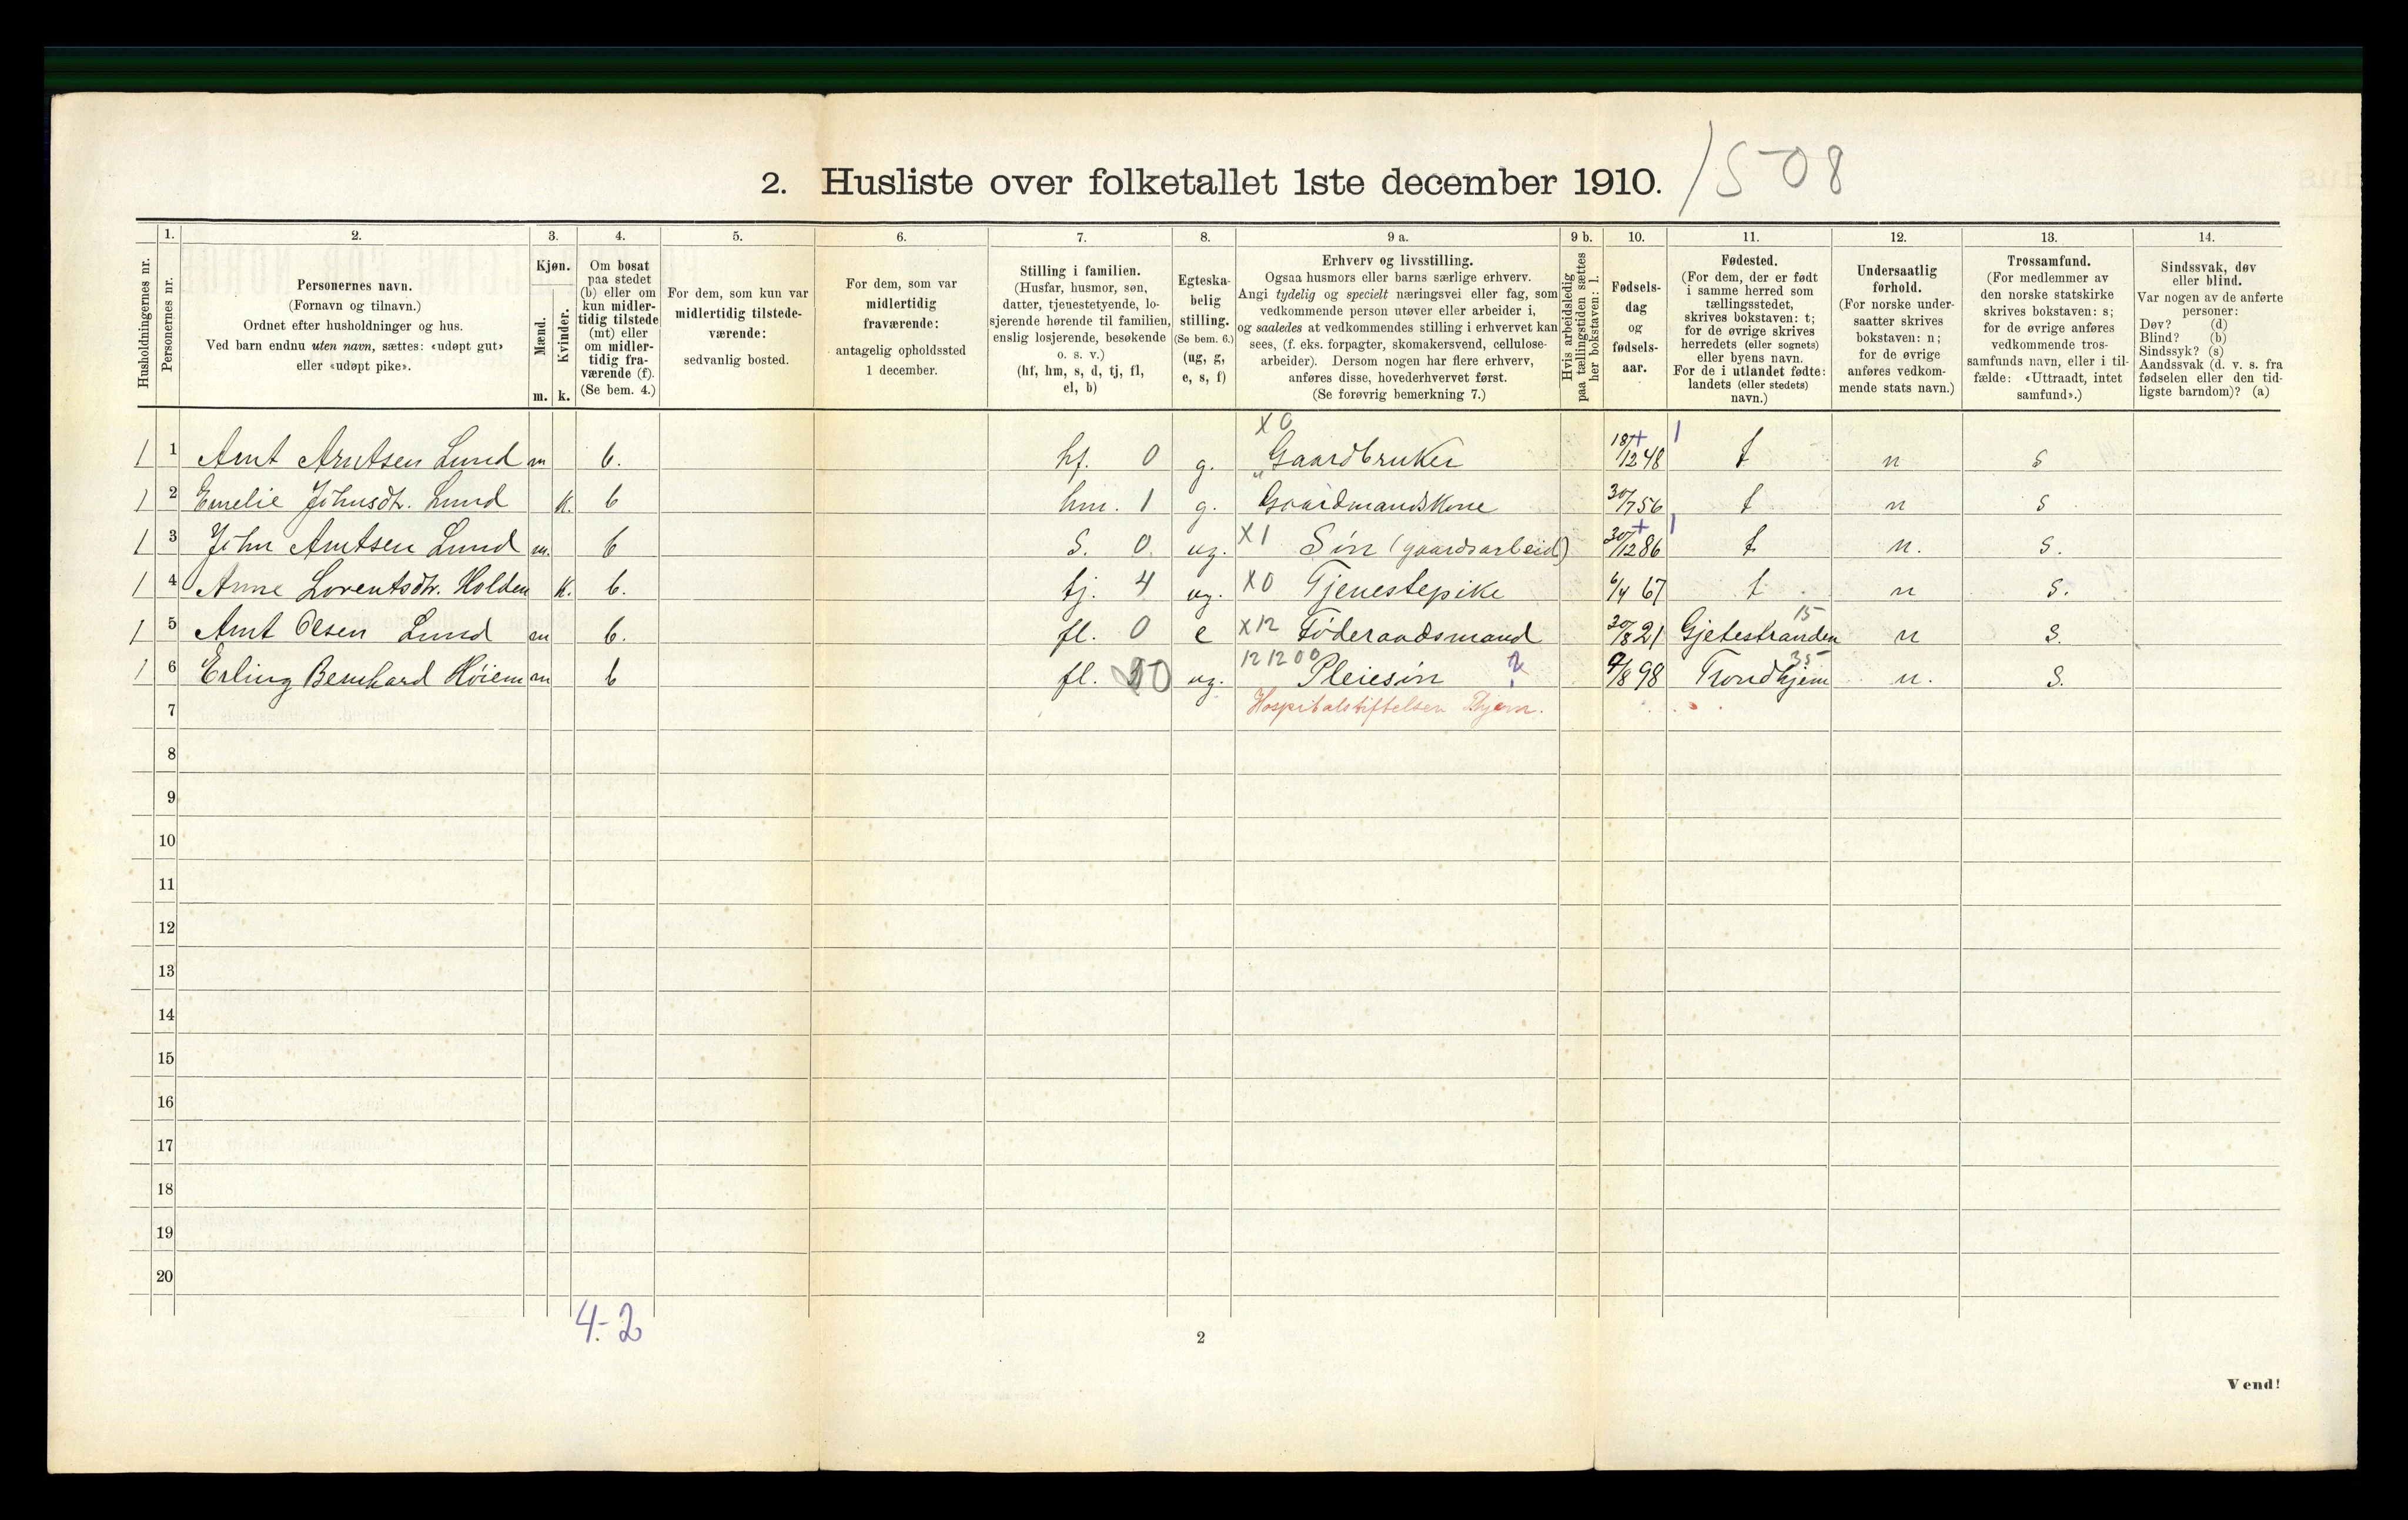 2. Husliste over folketallet 1ste december 1910. 1508
Husholdningernes nr.
1. Personernes nr.
2. Personernes navn.
(Fornavn og tilnavn.)
Ordnet efter husholdninger og hus.
Ved barn endnu uten navn, sættes: «udøpt gut»
eller «udøpt pike».
3. Kjøn.
Mænd. m.
Kvinder. k.
4. Om bosat
paa stedet
(b) eller om
kun midler-
tidig tilstede
(mt) eller
om midler-
tidig fra-
værende (f).
(Se bem. 4.)
5. For dem, som kun var
midlertidig tilstede-
værende:
sedvanlig bosted.
6. For dem, som var
midlertidig
fraværende:
antagelig opholdssted
1 december.
7. Stilling i familien.
(Husfar, husmor, søn,
datter, tjenestetyende, lo-
sjerende hørende til familien,
enslig losjerende, besøkende
o. s. v.)
(hf, hm, s, d, tj, fl,
el, b)
8. Egteska-
belig
stilling.
(Se bem. 6.)
(ug, g,
e, s, f)
9 a. Erhverv og livsstilling.
Ogsaa husmors eller barns særlige erhverv.
Angi tydelig og specielt næringsvei eller fag, som
vedkommende person utøver eller arbeider i,
og saaledes at vedkommendes stilling i erhvervet kan
sees, (f. eks. forpagter, skomakersvend, cellulose-
arbeider). Dersom nogen har flere erhverv,
anføres disse, hovederhvervet først.
(Se forøvrig bemerkning 7.)
9 b. Hvis arbeidsledig
paa tællingstiden sættes
her bokstaven: l.
10. Fødsels-
dag
og
fødsels-
aar.
11. Fødested.
(For dem, der er født
i samme herred som
tællingsstedet,
skrives bokstaven: t;
for de øvrige skrives
herredets (eller sognets)
eller byens navn.
For de i utlandet fødte:
landets (eller stedets)
navn.)
12. Undersaatlig
forhold.
(For norske under-
saatter skrives
bokstaven: n;
for de øvrige
anføres vedkom-
mende stats navn.)
13. Trossamfund.
(For medlemmer av
den norske statskirke
skrives bokstaven: s;
for de øvrige anføres
vedkommende tros-
samfunds navn, eller i til-
fælde: «Uttraadt, intet
samfund».)
14. Sindssvak, døv
eller blind.
Var nogen av de anførte
personer:
Døv? (d)
Blind? (b)
Sindssyk? (s)
Aandssvak (d. v. s. fra
fødselen eller den tid-
ligste barndom)? (a)
X 0
1 1 Arnt Arntsen Lund m b. hf. 0 g. Gaardbruker 18/12 48 t n s
1 2 Emelie Johnsdtr. Lund k. b hm. 1 g. Gaardmandskone 30/7 56 t n s
1 3 John Arntsen Lund m. b s. 0 ug. X1 Søn (gaardsarbeid) 30/12 86 t n. s.
1 4 Anne Lorentsdtr. Holden k. b. tj. 4 ug. X0 Tjenestepike 6/4 67 t n s.
1 5 Arnt Olsen Lund m b. fl. 0 e X12 Föderaadsmand 20/8 21 Gjetestranden 15 n s.
1 6 Erling Bernhard Höiem m b fl. 0 ug. 12 12 00 Pleiesön ? 9/8 98 Trondhjem 35 n. s.
7 Hospitalstiftelsen Thjem.
8
9
10
11
12
13
14
15
16
17
18
19
20
4-2
2
Vend!